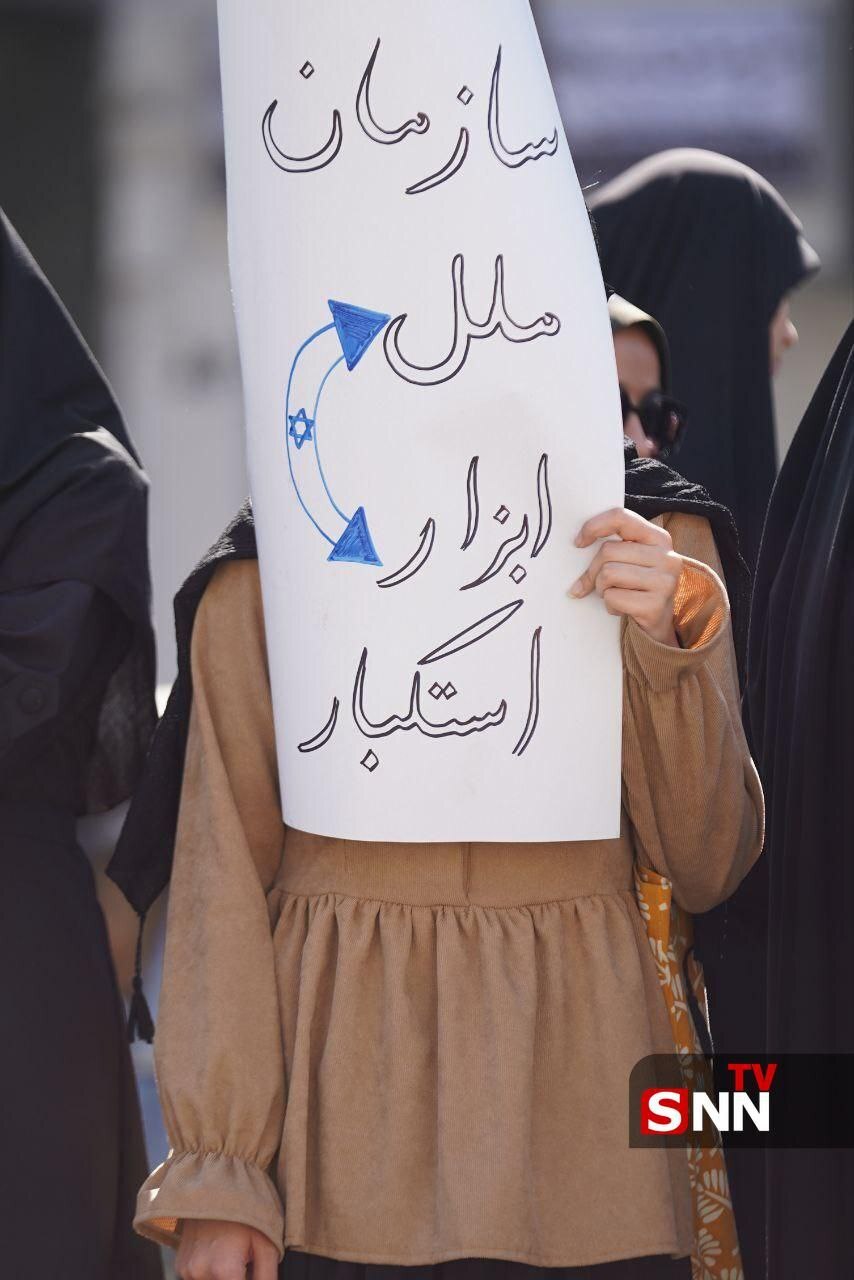 سازمان
ملل
ابزار
استکبار
SNN TV